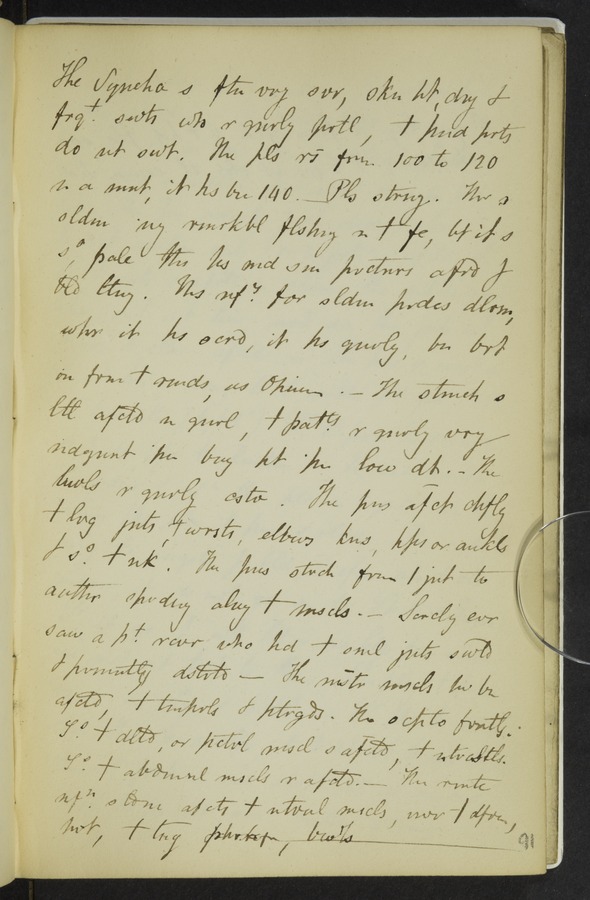 The Syncha s ftn vry svr, skn ht, dry &
frqt. swts who r gnrly prtl, † pnd prts
do nt swt. The pls rs frm 100 to 120
n a mnt, it hs bn 140. Pls strng. Thr s
sldm ny rmrkbl flshng n † fe, bt it s
so pale this hs md sm prctnrs afrd f
bld ltng. Ths nfn for sldm prdcs dlrm,
whr it hs ocrd, it hs gnrly, bn brt
on frm † rmds, as Opium. — The stmch s
ltl afctd n gnrl, † patts r gnrly vry
ndgnnt pn bng pt pn low dt. — The
bwls r gnrly cstv. The pns afct chfly
† lrg jnts, † wrsts, elbws kns, hps or ankls
& so. † nk. The pns strch frm 1 jnt to
anthr sprdng alng † mscls. — Scrcly evr
saw a pt. rcvr who hd † sml jnts swld
& prmnntly dstrtd — The mstr mscls hv bn
afctd, † tmprls & ptrgds. The ocpto frntls.
So † dltd, or pctrl mscl s afctd, † ntrcstls.
So † abdmnl mscls r afctd. — The rmtc
nfn. sldm afcts † ntrnl mscls, nvr † dfrm,
hrt, † tng , bwls
91